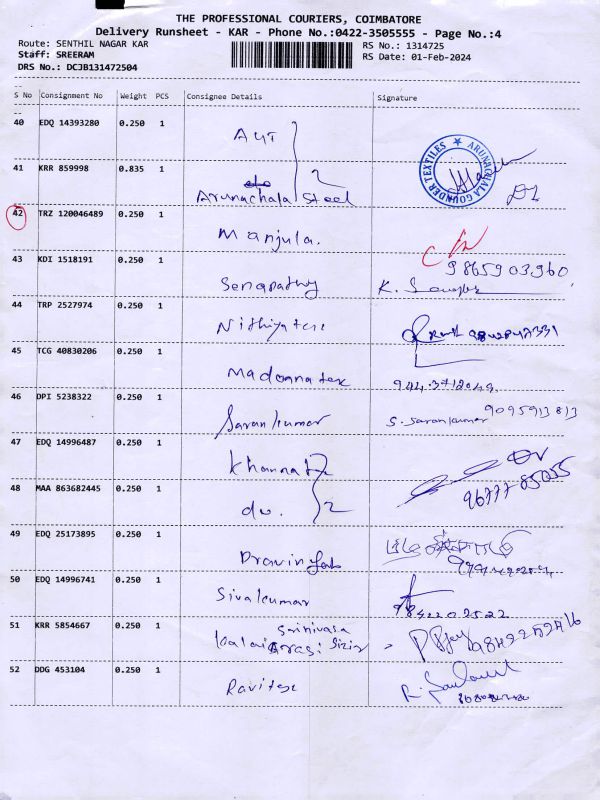 THE PROFESSIONAL COURIERS, COIMBATORE
Delivery Runsheet - KAR - Phone No.:0422-3505555 - Page No.:4
Route: SENTHIL NAGAR KAR
RS No.: 1314725
Staff: SREERAM
RS Date: 01-Feb-2024
DRS No.: DCJB131472504
S No Consignment No Weight PCS Consignee Details Signature
40 EDQ 14393280 0.250 1
41 KRR 859998 0.835 1 Arunachala Steel 2
ARUNACHALA GOUNDER TEXTILES
42 TRZ 120046489 0.250 1 Manjula.
43 KDI 1518191 0.250 1 Senapathy K. 9865903960
44 TRP 2527974 0.250 1 Nithiyatex
45 TCG 40830206 0.250 1 Madonna tex
46 DPI 5238322 0.250 1 Sarankumar S. Sarankumar 9095913813
47 EDQ 14996487 0.250 1
48 MAA 863682445 0.250 1 do. 2 96777 85055
49 EDQ 25173895 0.250 1
50 EDQ 14996741 0.250 1 Sivakumar
51 KRR 5854667 0.250 1 Srinivasa
52 DDG 453104 0.250 1 Ravitex